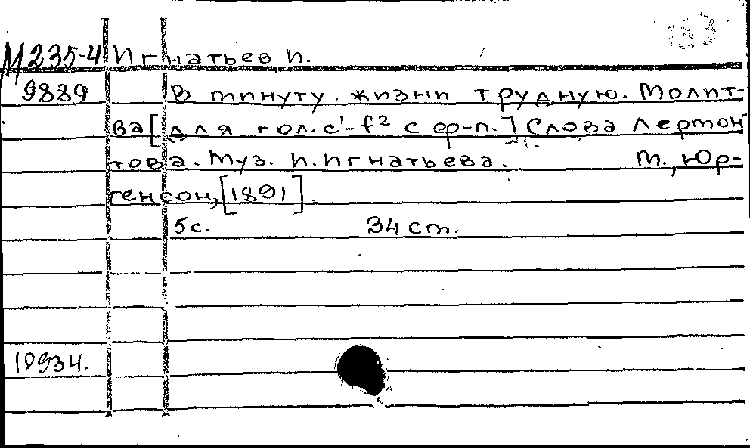 М235-4 Игнатьев И.
9889 В минуту жизни трудную. Молит-
ва [для гол. c¹-f² с ф-п.] Слова Лермон-
това. Муз. И. Игнатьева. М., Юр-
генсон, [1891]
5с. 34 см.
10934.